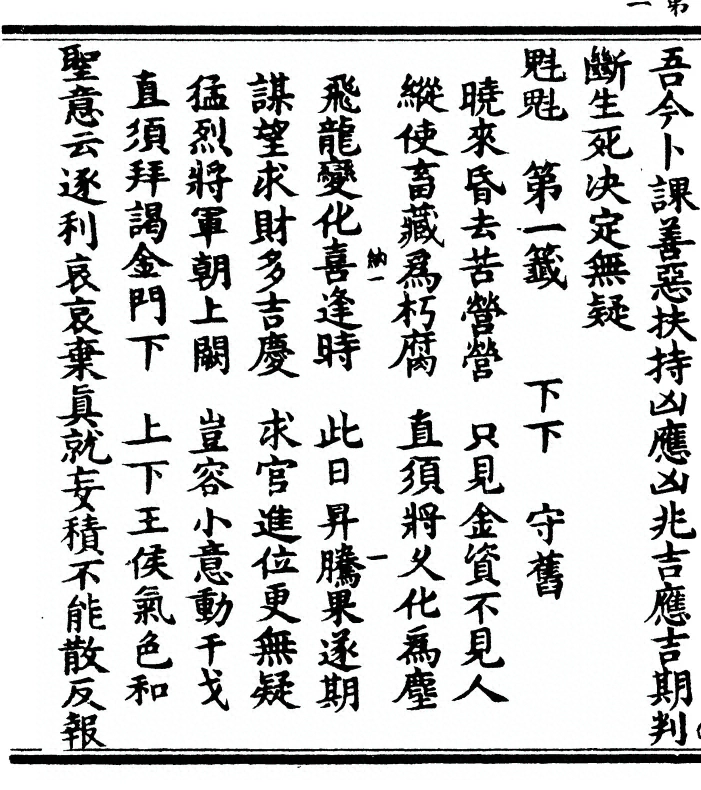 第一
吾今卜課善惡扶持凶應凶兆吉應吉期判
斷生死決定無疑
魁魁 第一籤 下下 守舊
曉來昏去苦營營 只見金資不見人
縱使畜藏爲朽腐 直須將久化爲塵
納一 一
飛龍變化喜逢時 此日昇騰果遂期
謀望求財多吉慶 求官進位更無疑
猛烈將軍朝上闕 豈容小意動干戈
直須拜謁金門下 上下王侯氣色和
聖意云逐利哀哀棄眞就妄積不能散反報